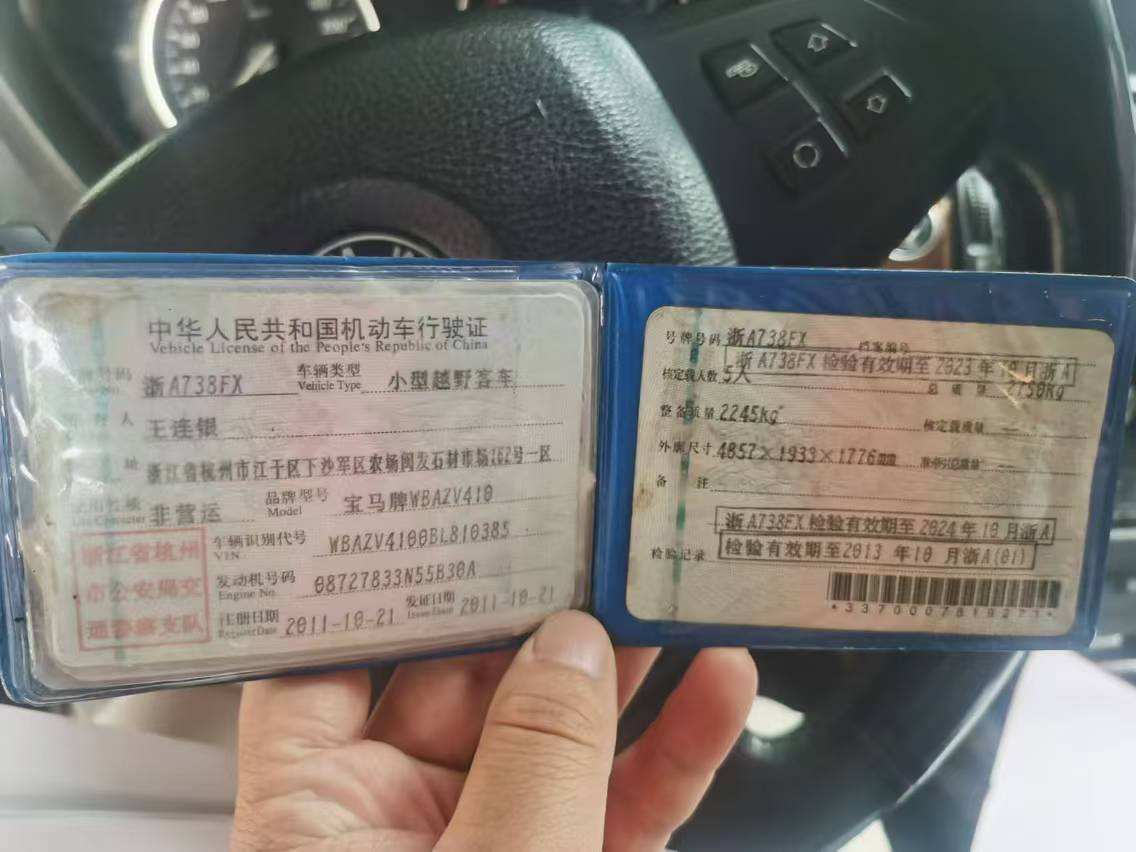 中华人民共和国机动车行驶证
Vehicle License of the People's Republic of China
号码 浙A738FX 车辆类型 Vehicle Type 小型越野客车
人 王连银
址 浙江省杭州市江干区下沙军区农场闽发石材市场162号一区
非营运 品牌型号 Model 宝马牌WBAZV410
浙江省杭州
市公安局交
通警察支队
车辆识别代号 VIN WBAZV4100BL810385
发动机号码 Engine No. 08727833N55B30A
注册日期 Register Date 2011-10-21 发证日期 Issue Date 2011-10-21
号牌号码 浙A738FX 档案编号
浙A738FX 检验有效期至 2023 年 10 月浙A
核定载人数 5人 总质量 2750Kg
整备质量 2245Kg 核定载质量 --
外廓尺寸 4857×1933×1776mm 准牵引总质量 --
备注
浙A738FX 检验有效期至 2024 年 10 月浙A
检验记录 检验有效期至2013 年 10 月浙A(01)